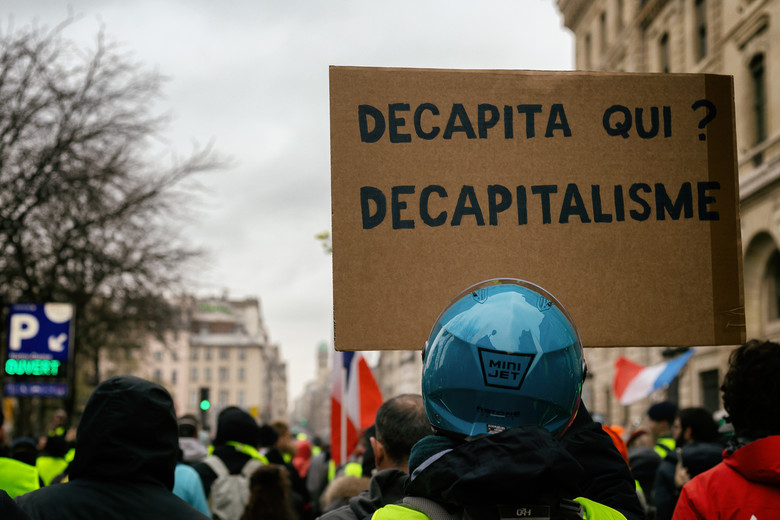 DECAPITA QUI ?
DECAPITALISME
P
OUVERT
MINI
JET